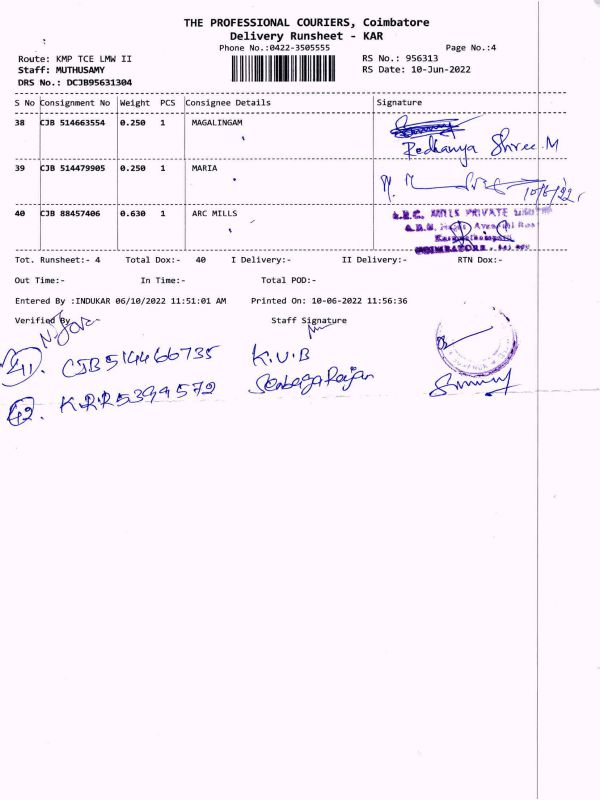 THE PROFESSIONAL COURIERS, Coimbatore
Delivery Runsheet - KAR
Phone No.:0422-3505555 Page No.:4
Route: KMP TCE LMW II RS No.: 956313
Staff: MUTHUSAMY RS Date: 10-Jun-2022
DRS No.: DCJB95631304
S No Consignment No Weight PCS Consignee Details Signature
38 CJB 514663554 0.250 1 MAGALINGAM
Redhanya Shree.M
39 CJB 514479905 0.250 1 MARIA
10/6/22
40 CJB 88457406 0.630 1 ARC MILLS
MILLS PRIVATE
Tot. Runsheet:- 4 Total Dox:- 40 I Delivery:- II Delivery:- RTN Dox:-
Out Time:- In Time:- Total POD:-
Entered By :INDUKAR 06/10/2022 11:51:01 AM Printed On: 10-06-2022 11:56:36
Verified By Staff Signature
41. CJB514466735 K.V.B
42. KRR5394572